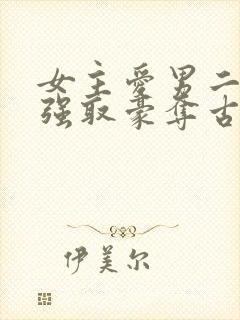 女主爱男二
强取豪夺古
伊美尔